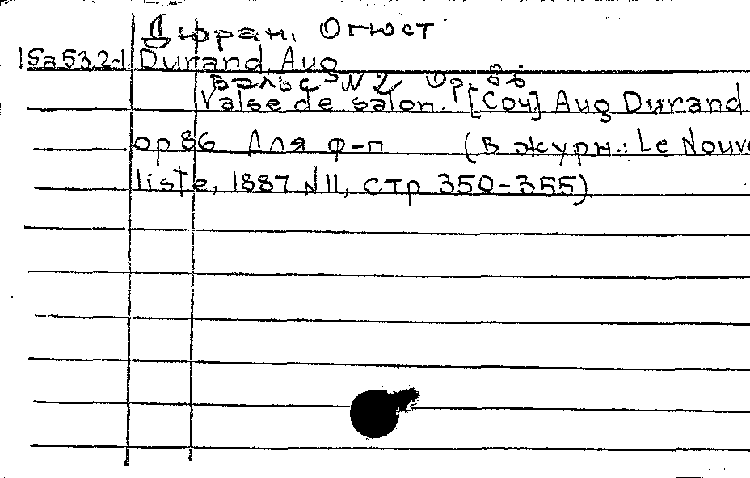 Дюран, Огюст
15a532-1 Durand Aug
Вальс №2, Op. 86
Valse de salon. [Соч] Aug Durand
op 86 Для ф-п (В журн.: Le Nouve
liste, 1887 №11, стр 350-355)